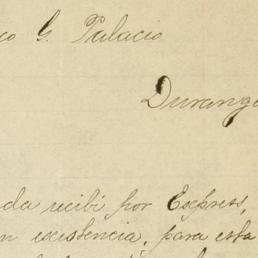 co G. Palacio
Durang
da recibí por Express,
n existencia, para esta